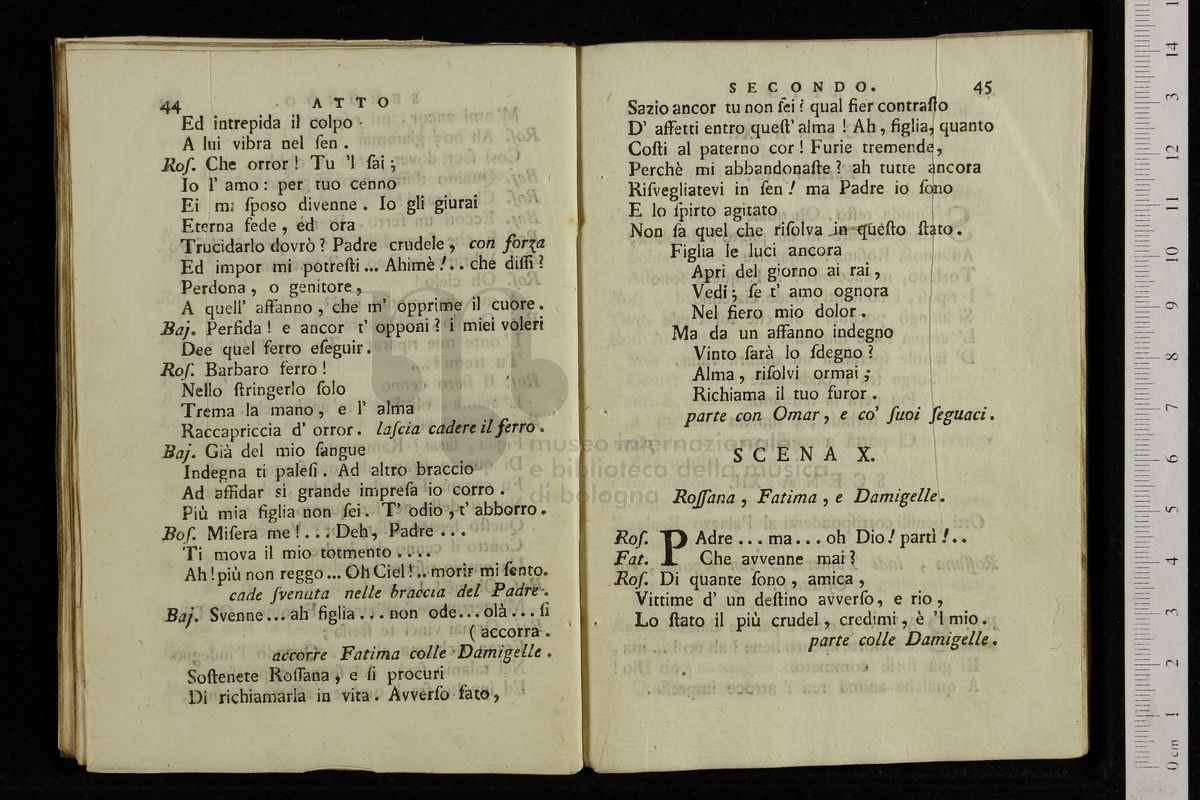 44 ATTO
Ed intrepida il colpo
A lui vibra nel ſen .
Roſ. Che orror ! Tu 'l ſai ;
Io l' amo : per tuo cenno
Ei mi ſposo divenne . Io gli giurai
Eterna fede , ed ora
Trucidarlo dovrò ? Padre crudele , con forza
Ed impor mi potreſti ... Ahimè ! .. che diſſi ?
Perdona , o genitore ,
A quell' affanno , che m' opprime il cuore .
Baj. Perfida ! e ancor t' opponi ? i miei voleri
Dee quel ferro eſeguir .
Roſ. Barbaro ferro !
Nello ſtringerlo ſolo
Trema la mano , e l' alma
Raccapriccia d' orror . laſcia cadere il ferro .
Baj. Già del mio ſangue
Indegna ti paleſi . Ad altro braccio
Ad affidar sì grande impreſa io corro .
Più mia figlia non ſei . T' odio , t' abborro .
Boſ. Miſera me ! . . . Deh , Padre . . .
Ti mova il mio totmento . . . .
Ah ! più non reggo ... Oh Ciel ! .. morir mi ſento.
cade ſvenuta nelle braccia del Padre .
Baj. Svenne ... ah figlia . . . non ode ... olà ... ſi
( accorra .
accorre Fatima colle Damigelle .
Soſtenete Roſſana , e ſi procuri
Di richiamarla in vita . Avverſo fato ,
SECONDO. 45
Sazio ancor tu non ſei ? qual fier contraſto
D' affetti entro queſt' alma ! Ah , figlia, quanto
Coſti al paterno cor ! Furie tremende,
Perchè mi abbandonaſte ? ah tutte ancora
Riſvegliatevi in ſen ! ma Padre io ſono
E lo ſpirto agitato
Non ſa quel che riſolva in queſto ſtato .
Figlia le luci ancora
Apri del giorno ai rai ,
Vedi ; ſe t' amo ognora
Nel fiero mio dolor .
Ma da un affanno indegno
Vinto ſarà lo ſdegno ?
Alma , riſolvi ormai ;
Richiama il tuo furor .
parte con Omar , e co' ſuoi ſeguaci .
SCENA X.
Roſſana , Fatima , e Damigelle.
Roſ. PAdre ... ma ... oh Dio ! partì ! ..
Fat. Che avvenne mai ?
Roſ. Di quante ſono , amica ,
Vittime d' un deſtino avverſo , e rio ,
Lo ſtato il più crudel , credimi , è 'l mio .
parte colle Damigelle .
museo internazionale
e biblioteca della musica
di bologna
0 cm 1 2 3 4 5 6 7 8 9 10 11 12 13 14